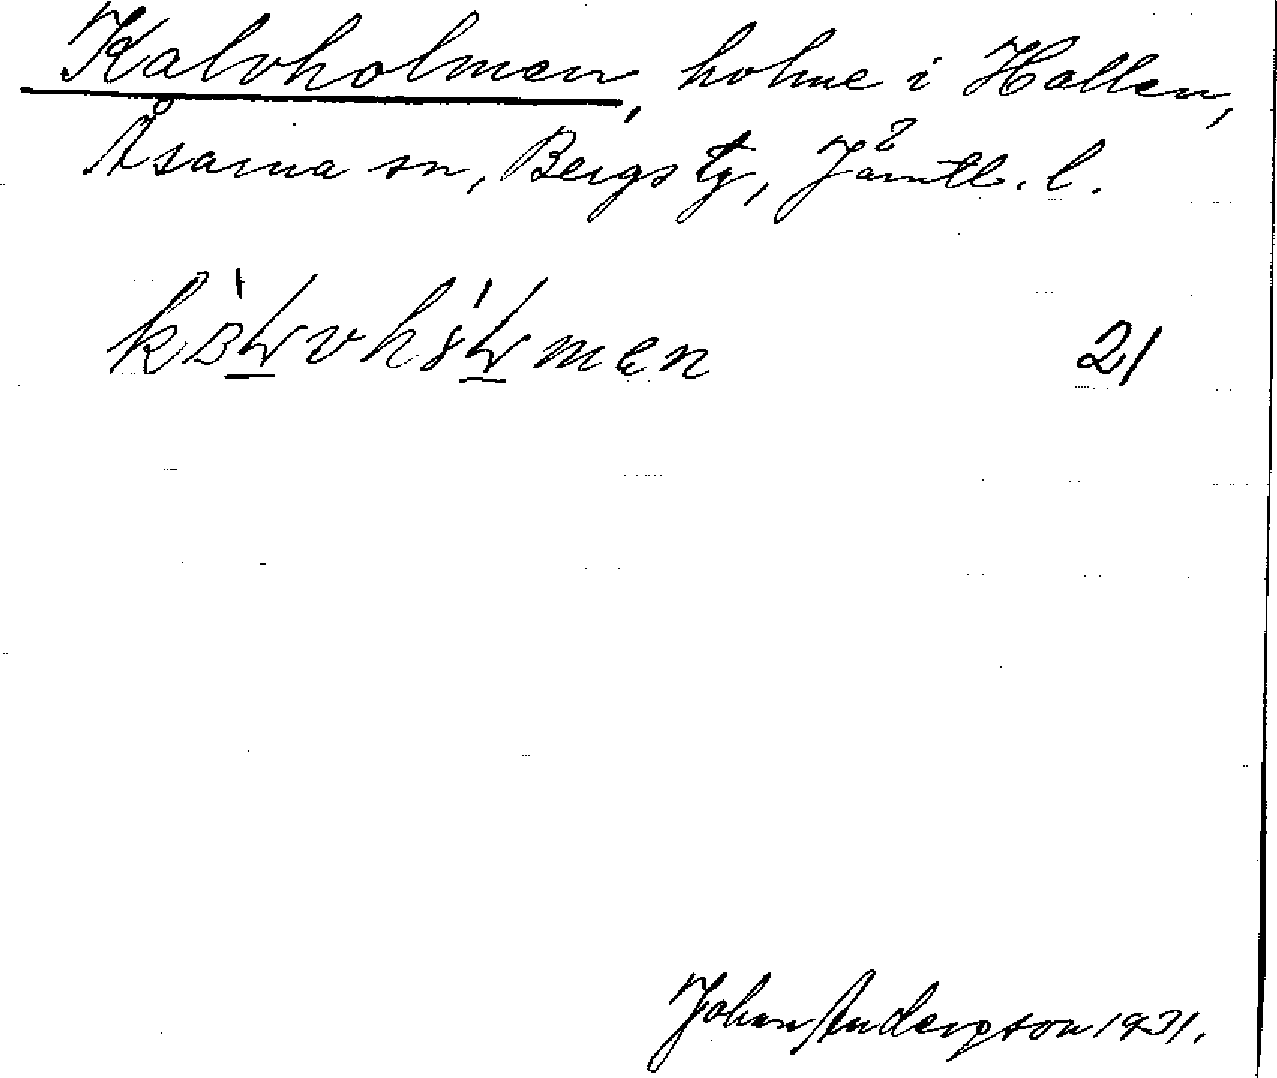 Kalvholmen, holme i Hallen,
Åsarna sn, Bergs tg, Jämtl. l.
21
Johan Anderson 1931.